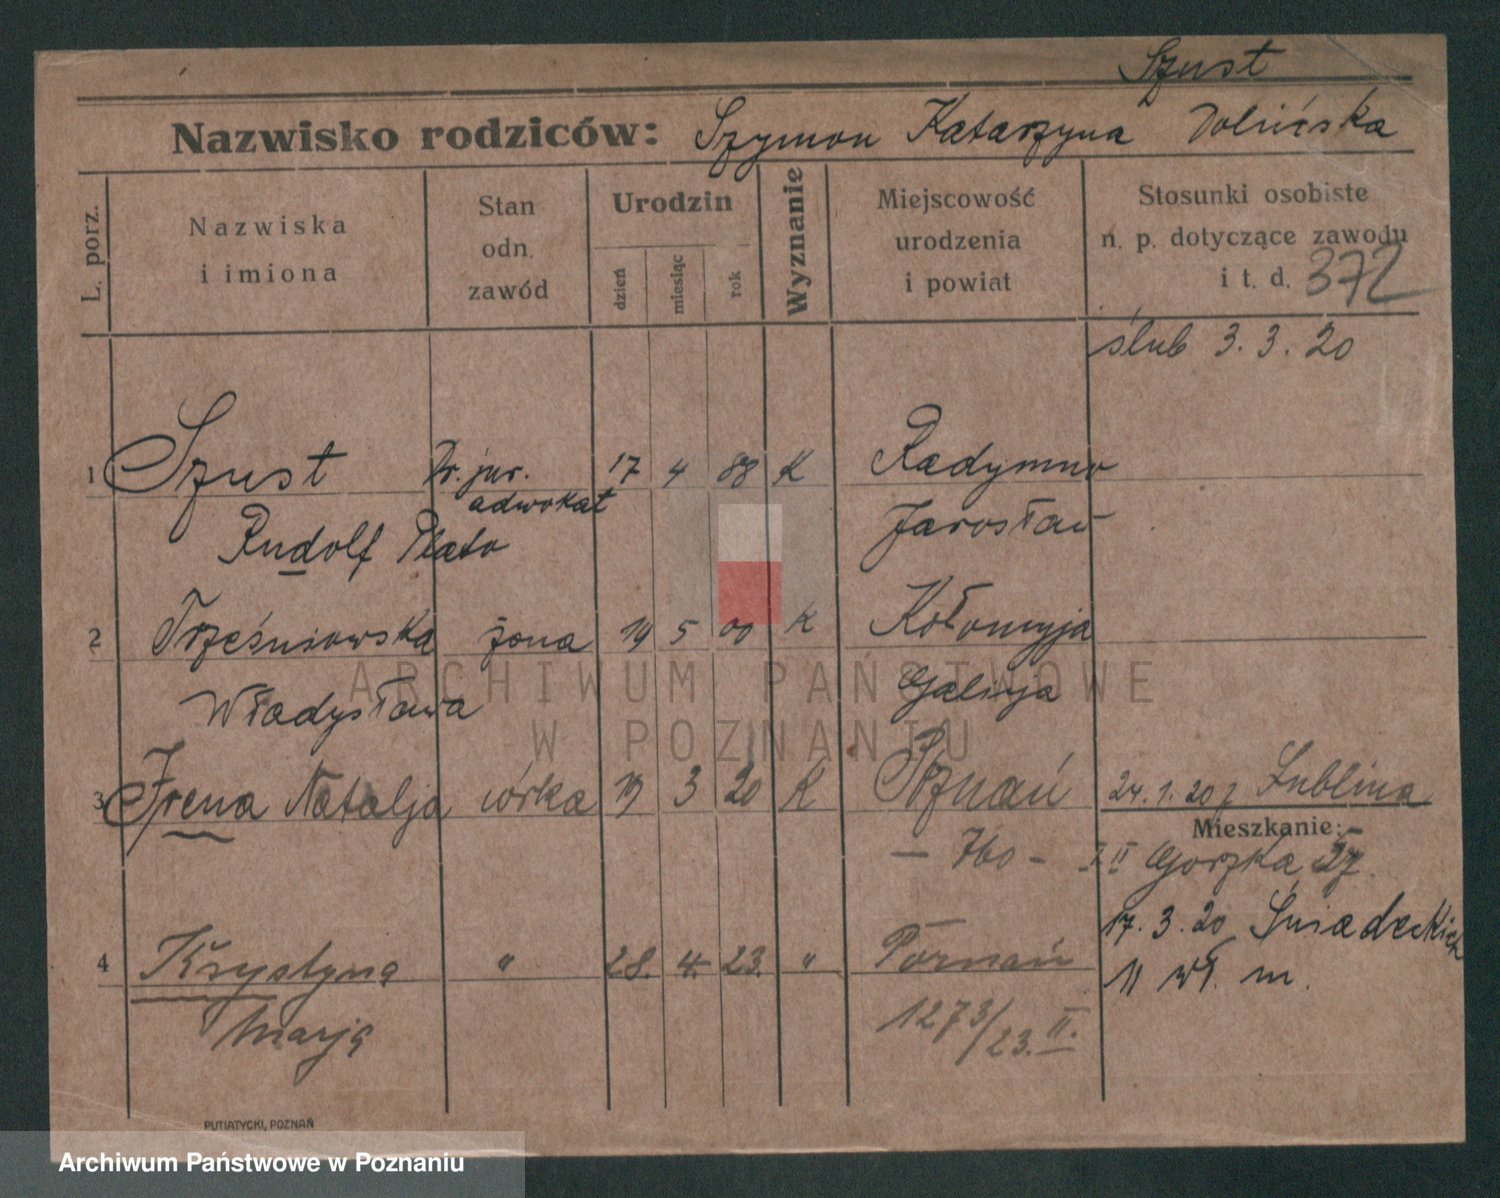 Szust
Nazwisko rodziców: Szymon Katarzyna Dolińska
L. porz.
Nazwiska
i imiona
Stan
odn.
zawód
Urodzin
dzień
miesiąc
rok
Wyznanie
Miejscowość
urodzenia
i powiat
Stosunki osobiste
n. p. dotyczące zawodu
i t. d. 372
ślub 3.3.20
1 Szust Dr. jur. 17 4 88 K Radymno
adwokat
Rudolf Plato Jarosław
2 Trześniowska żona 19 5 00 K Kołomyja
Władysława Galicja
3 Irena Natalja córka 19 3 20 K Poznań 24.1.20 z Lublina
Mieszkanie:
— 760 — II Gorzka 27.
17.3.20 Śniadeckich
4 Krystyna " 28. 4. 23. " Poznań
11 wł. m.
Marja 1273/23. II.
PUTIATYCKI, POZNAŃ
ARCHIWUM PAŃSTWOWE
W POZNANIU
Archiwum Państwowe w Poznaniu